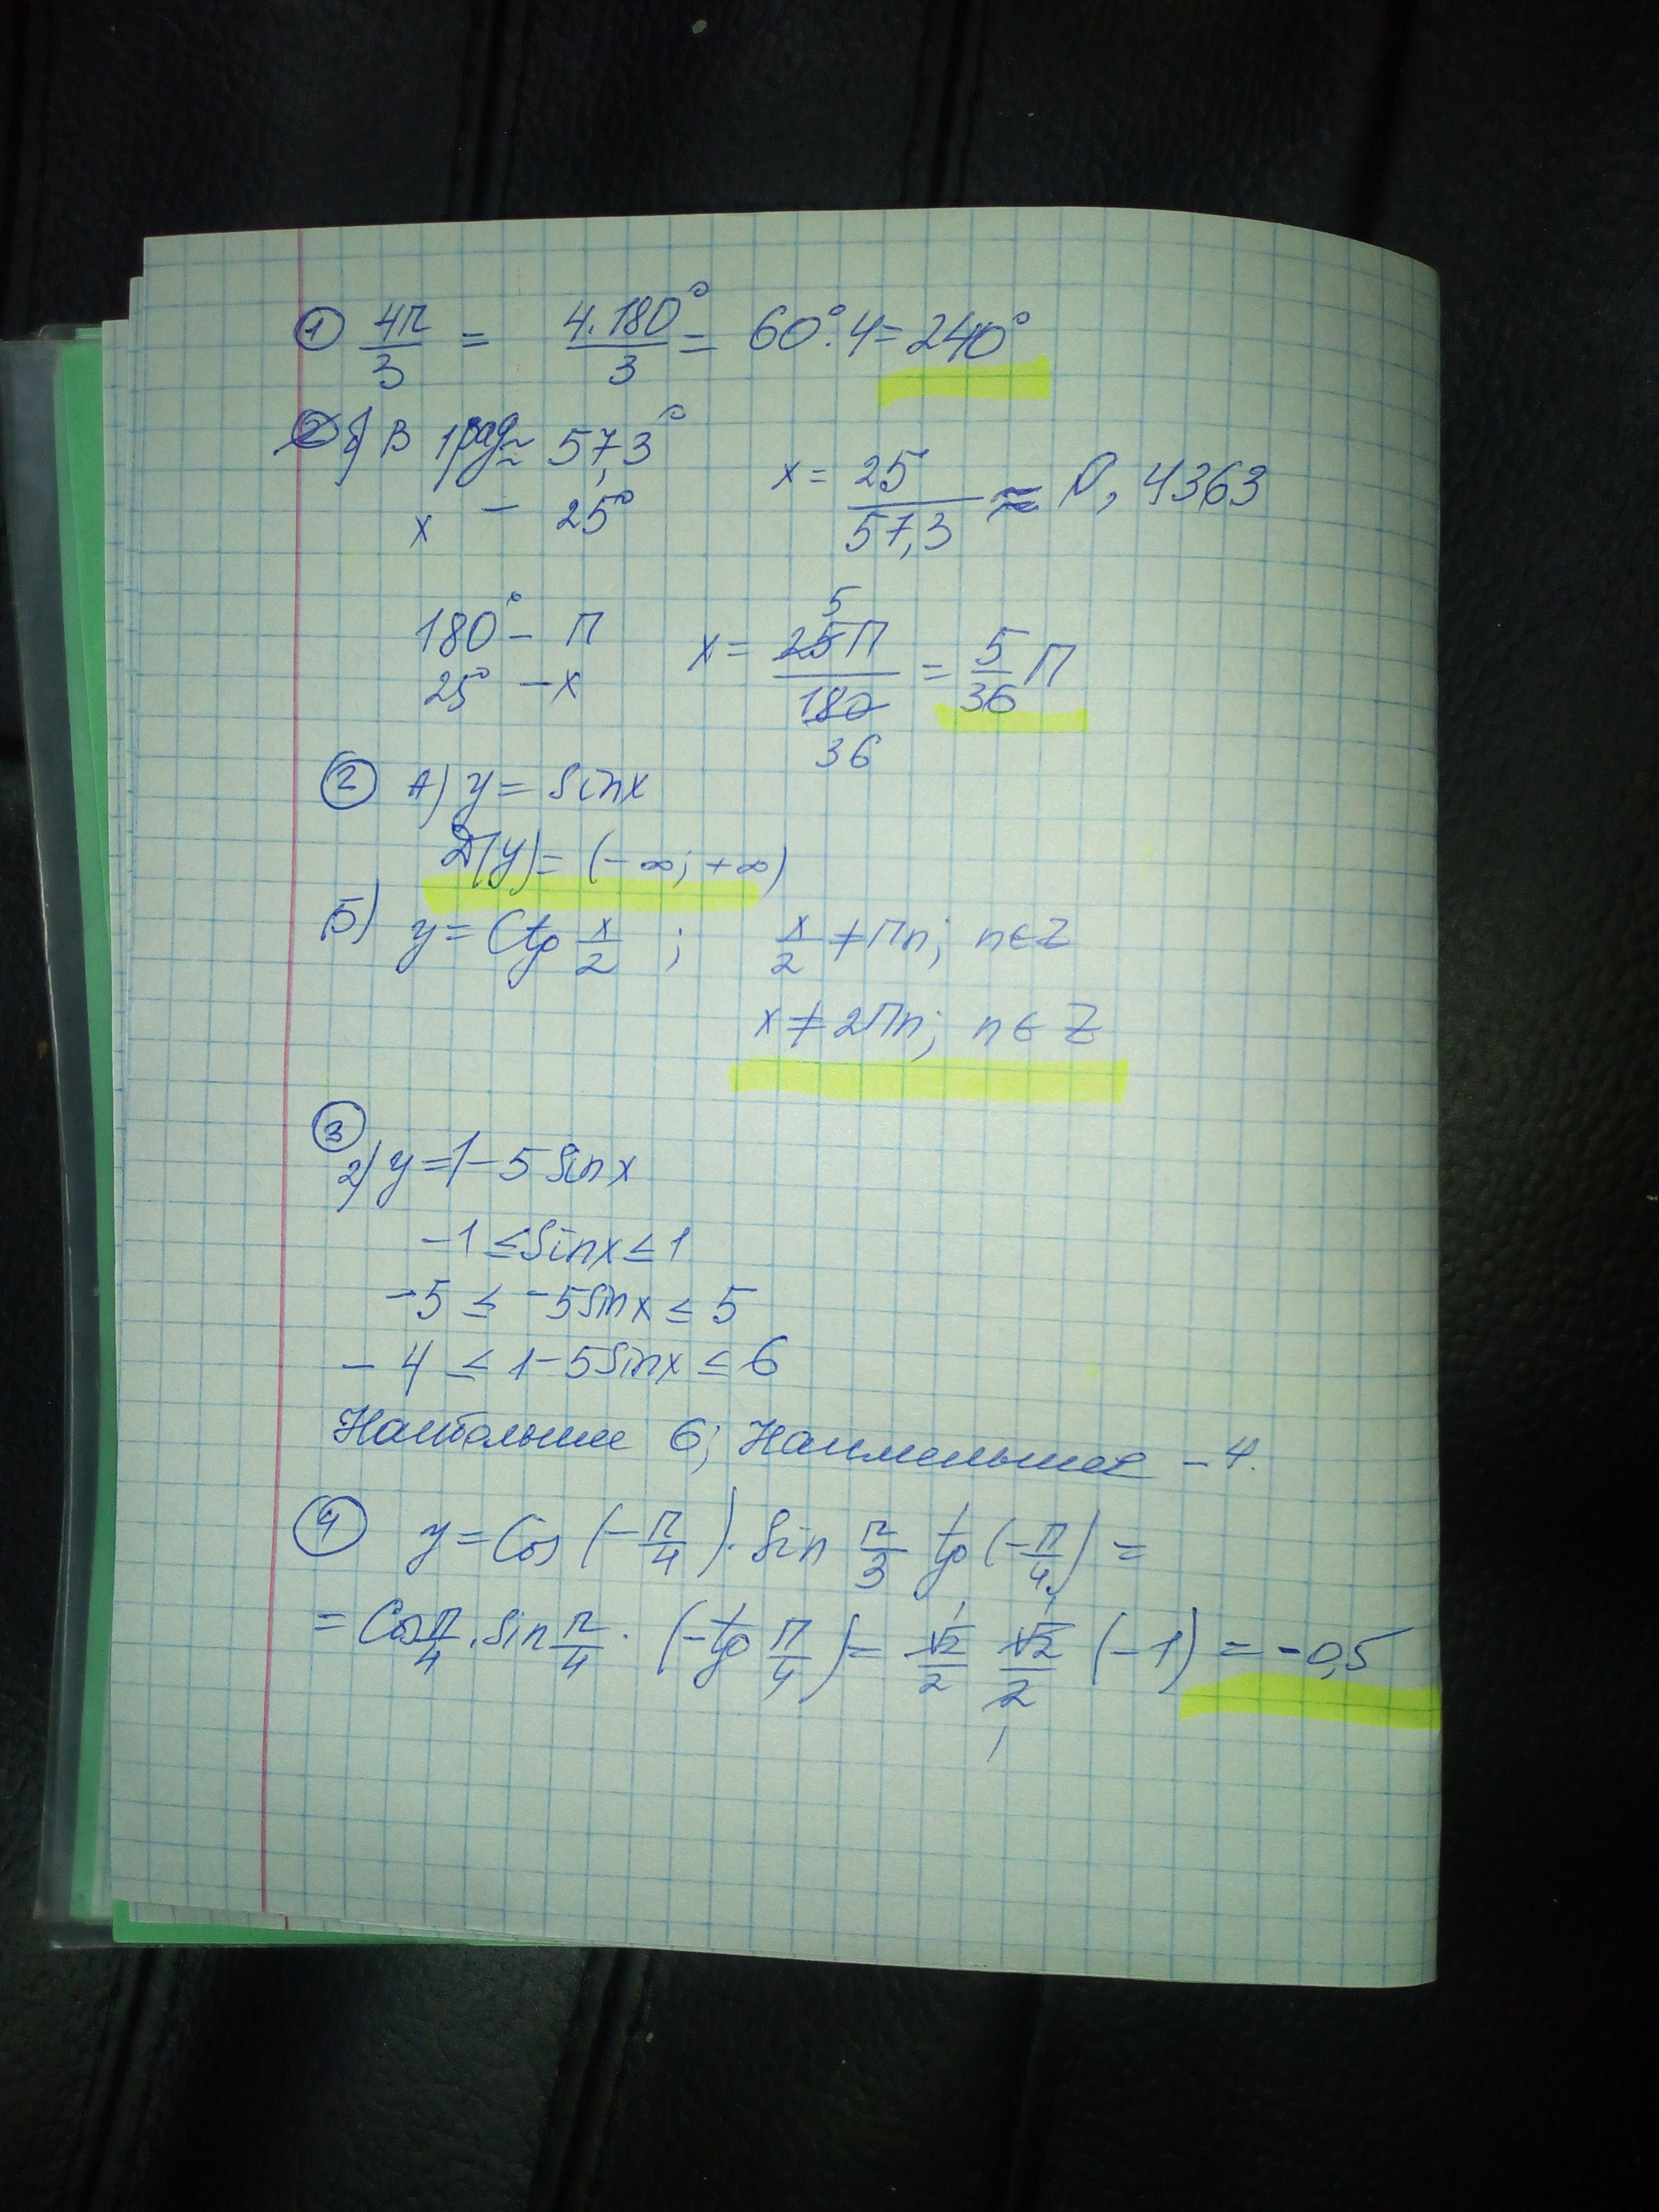 ① 4π/3 = 4·180°/3 = 60°·4 = 240°
б) В 1рад ≈ 57,3°
x — 25°
x = 25/57,3 ≈ 0,4363
180° — π
25° — x
x = 25π/180 = 5/36 π
5
36
② А) y = sinx
D(y) = (-∞; +∞)
Б) y = Ctg x/2 ; x/2 ≠ πn; n∈Z
x ≠ 2πn; n∈Z
③
2) y = 1-5sinx
-1 ≤ sinx ≤ 1
-5 ≤ -5sinx ≤ 5
-4 ≤ 1-5sinx ≤ 6
Наибольшее 6; Наименьшее -4.
④ y = Cos(-π/4)·Sin π/3 tg(-π/4) =
= Cos π/4 · sin π/4 · (-tg π/4) = √2/2 √2/2 (-1) = -0,5